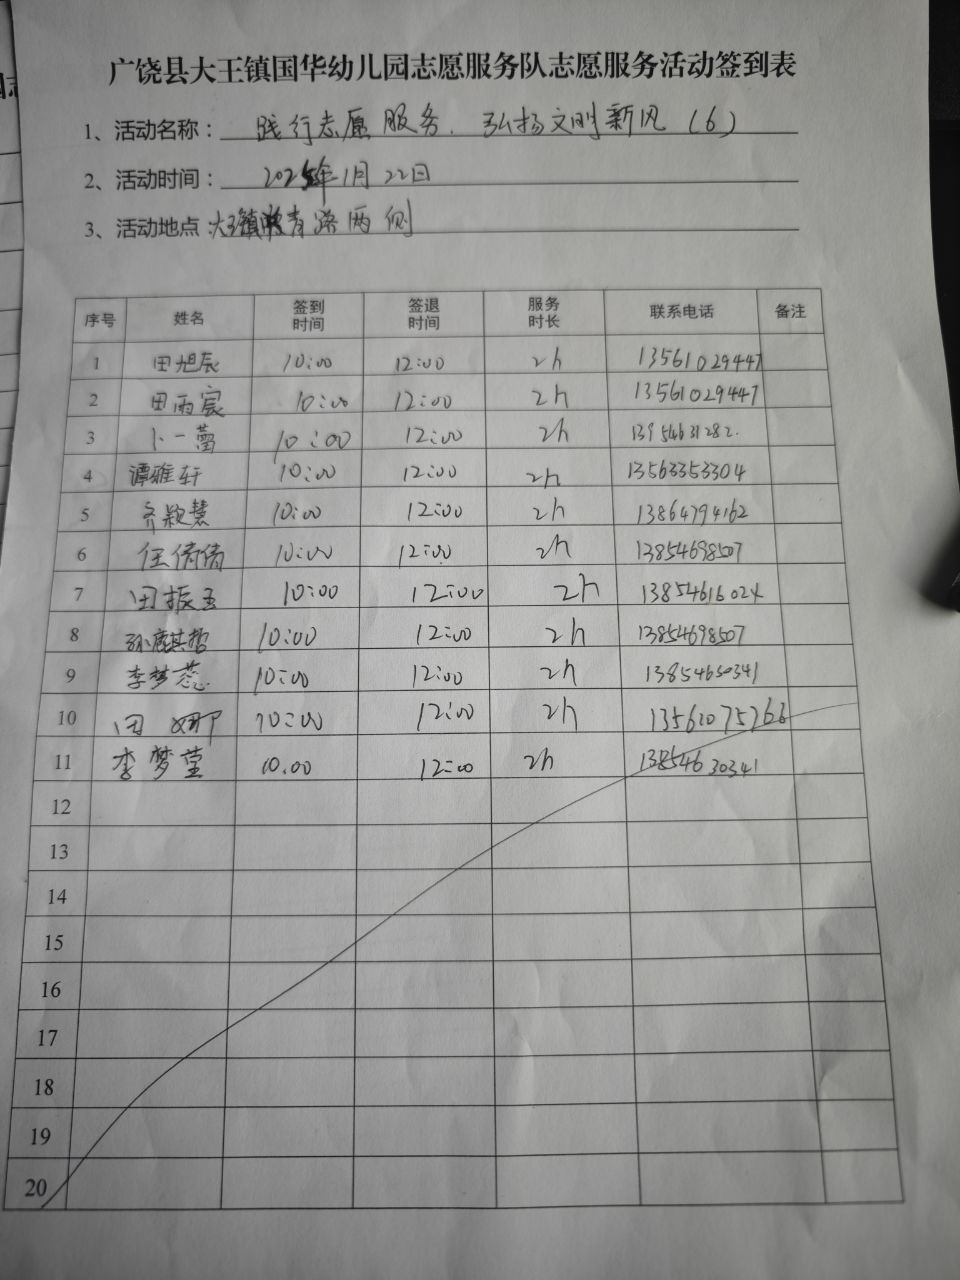 广饶县大王镇国华幼儿园志愿服务队志愿服务活动签到表
1、活动名称：践行志愿服务.弘扬文明新风（6）
2、活动时间：2025年1月22日
3、活动地点：大王镇教育路两侧
序号 姓名 签到时间 签退时间 服务时长 联系电话 备注
1 田旭辰 10:00 12:00 2h 13561029447
2 田雨宸 10:00 12:00 2h 13561029447
3 卜一蕾 10:00 12:00 2h 13954631282.
4 谭雅轩 10:00 12:00 2h 13563353304
5 齐颖慧 10:00 12:00 2h 13864794162
6 任倩倩 10:00 12:00 2h 13854698507
7 田振玉 10:00 12:00 2h 13854616024
8 孙麒哲 10:00 12:00 2h 13854698507
9 李梦蕊 10:00 12:00 2h 13854630341
10 田娜 10:00 12:00 2h 13561075766
11 李梦莹 10.00 12:00 2h 13854630341
12
13
14
15
16
17
18
19
20